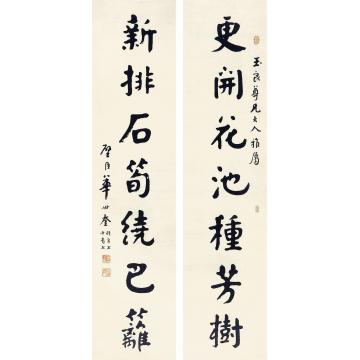 更開花池種芳樹
玉良尊兄大人雅屬
新排石筍繞巴籬
璧臣華世奎